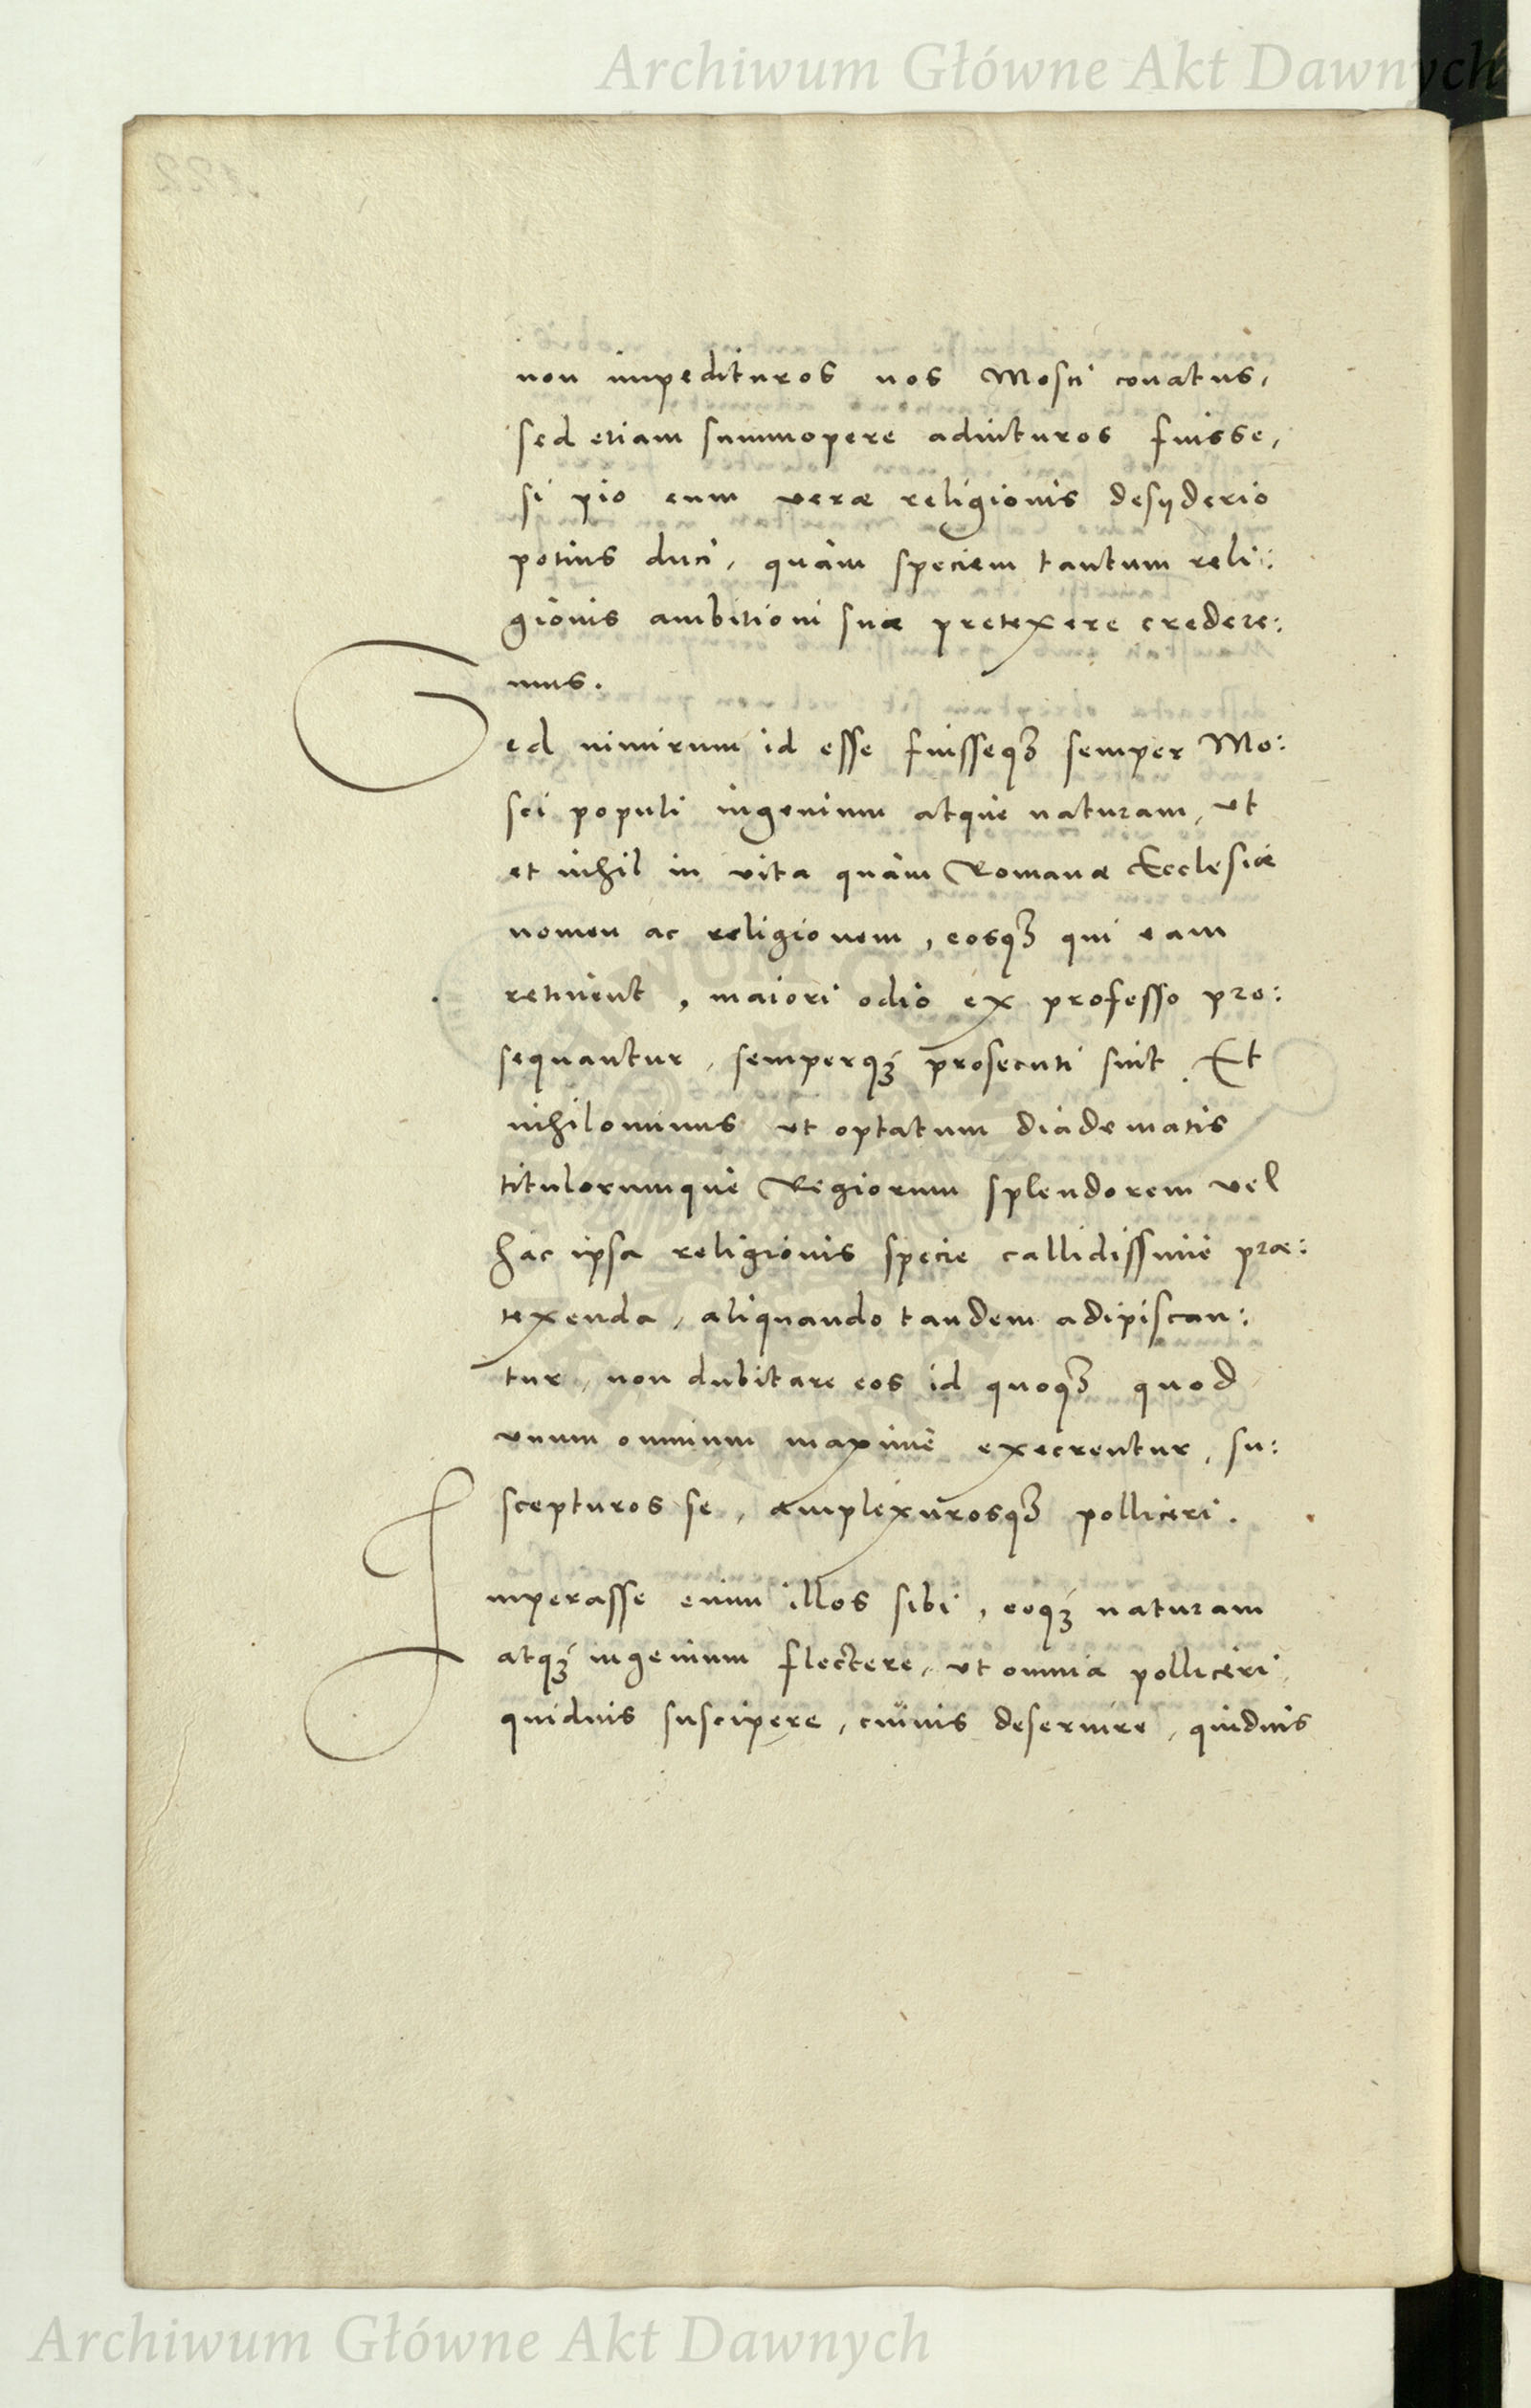 Archiwum Główne Akt Dawnych
non impedituros nos Mosci conatus,
sed etiam summopere adiuturos fuisse,
si pio eum veræ religionis desyderio
potius duci, quàm speciem tantum reli:
gionis ambitioni suæ pretexere credere:
mus.
Sed nimirum id esse fuisseqꝫ semper Mo:
sci populi ingenium atque naturam, vt
et nihil in vita quàm Romanæ Ecclesiæ
nomen ac religionem, eosqꝫ qui eam
retinent, maiori odio ex professo pro:
sequantur, semperqꝫ prosecuti sint. Et
nihilominus vt optatum diadematis
titulorumque Regiorum splendorem vel
hac ipsa religionis specie callidissimè præ:
texenda, aliquando tandem adipiscan:
tur, non dubitare eos id quoqꝫ quod
vnum omnium maximè execrentur, su:
scepturos se, amplexurosqꝫ polliceri.
Imperasse enim illos sibi, eoqꝫ naturam
atqꝫ ingenium flectere, vt omnia polliceri,
quiduis suscipere, cuiuis deseruire, quiduis
Archiwum Główne Akt Dawnych